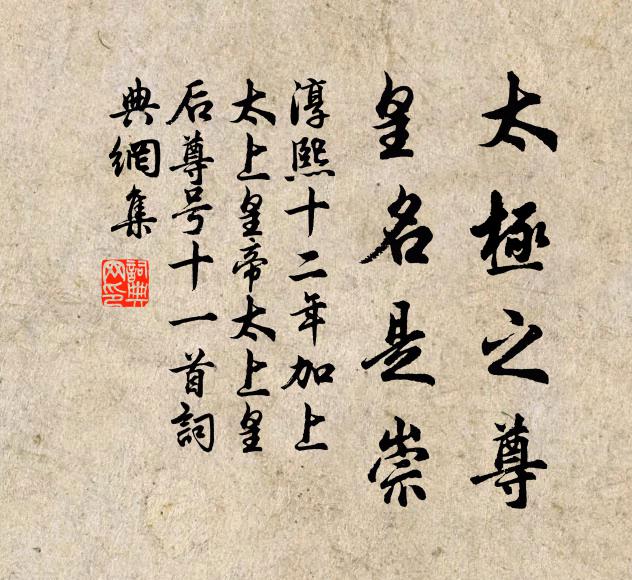 太極之尊
皇名是崇
淳熙十二年加上
太上皇帝太上皇
后尊号十一首詞
典網集
詞典網印